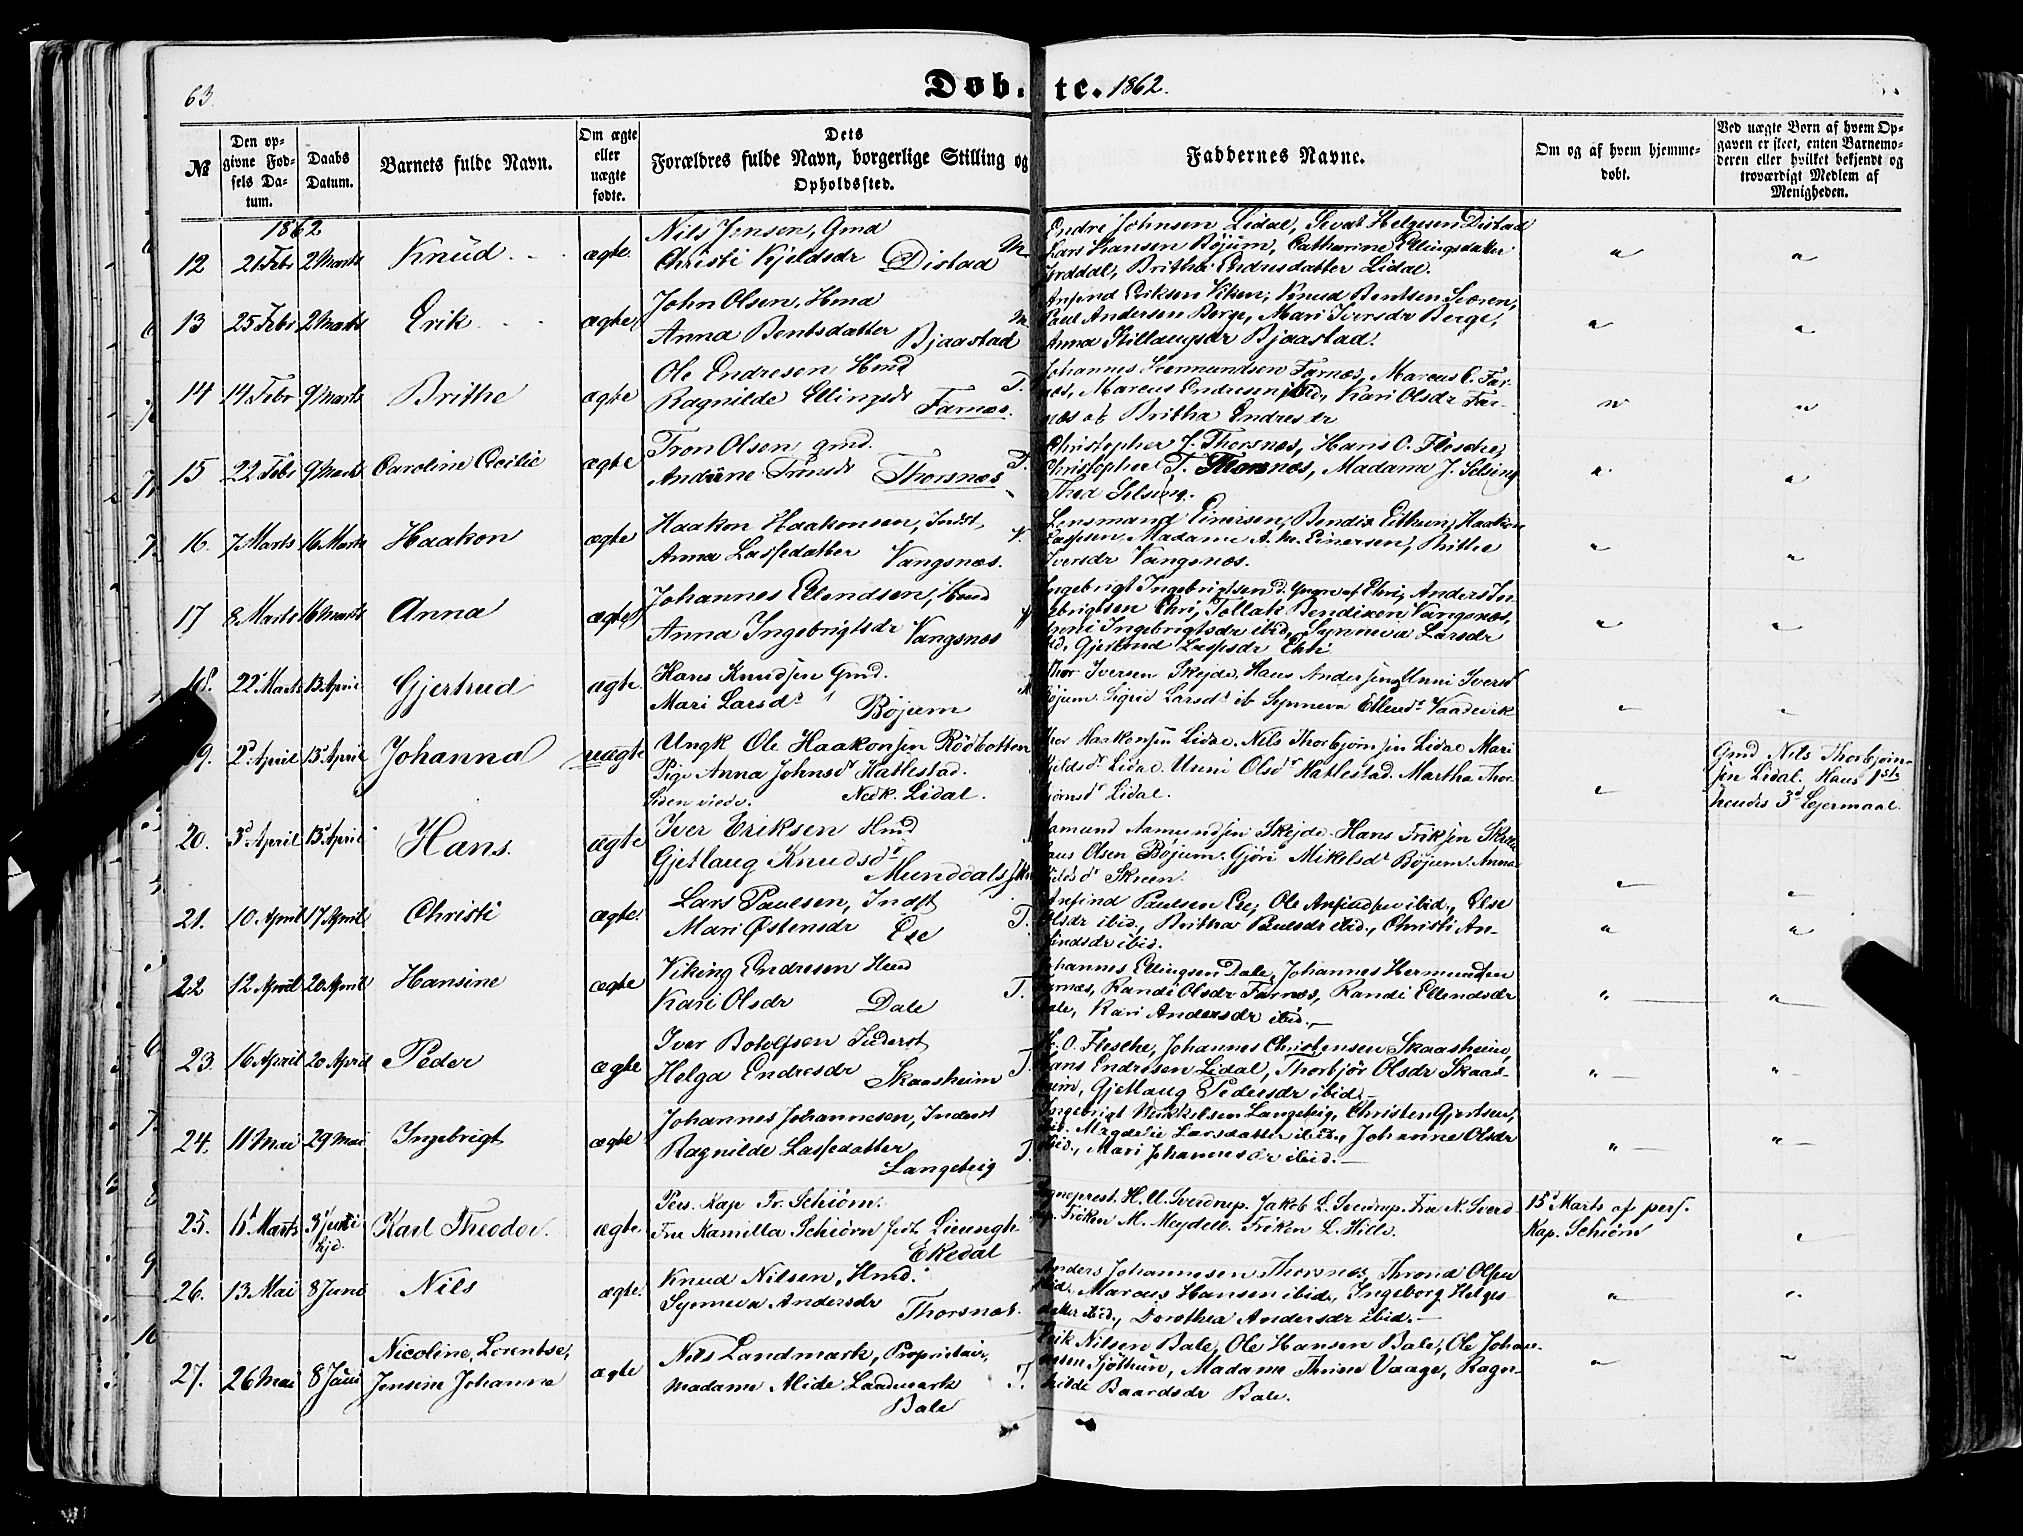 63.
Døb.te. 1862.
№
Den opgivne Fødsels Datum.
Daabs Datum.
Barnets fulde Navn.
Om ægte eller uægte fødte.
Dets Forældres fulde Navn, borgerlige Stilling og Opholdssted.
Faddernes Navne.
Om og af hvem hjemmedøbt.
Ved uægte Børn af hvem Opgaven er skeet, enten Barnemoderen eller hvilket bekjendt og troværdigt Medlem af Menigheden.
1862
12 21 Febr 2 Marts Knud ægte.
Nils Jensen, Gmd
Christi Kjeldsdr Distad M
Endre Johnsen Lidal, Sivat Helgesen Distad
Lars Hansen Bøjum, Catharine Ellingsdatter
Britha Endresdatter Lidal.
13 25 Febr 2 Marts Erik ægte
John Olsen, Hmd
Anna Bentsdatter Bjaastad M
Anfind Eriksen Viken, Knud Bentsen Sværen,
Paul Andersen Berge, Mari Iversdr Berge,
Anna Stillaugsdr Bjaastad.
14 14 Febr 9 Marts Brithe ægte
Ole Endresen Hmd
Ragnilde Ellingsdr Farnæs. T.
Johannes Hermundsen Farnæs, Marcus E. Far-
næs, Marcus Endresen ibid, Kari Olsdr Far-
næs og Britha Endresdr
15 22 Febr 9 Marts Caroline Cecilie ægte
Tron Olsen gmd.
Andrine Thorsnæs T.
Christopher J. Thorsnæs, Hans O. Flesche,
Christopher T. Thorsnæs, Madame J. Selsing
Thea Selsing.
16. 7 Marts 16 Marts Haakon ægte
Haakon Haakonsen, Indst
Anna Lassedatter Vangsnæs. V.
Lensmand Einersen, Bendix Eithun, Haakon
Lassen, Madame A. M. Einersen, Brithe
Iversdr Vangsnæs.
17 8 Marts 16 Marts Anna ægte
Johannes Ellendsen, Hmd
Anna Ingebrigtsdr Vangsnæs V
Ingebrigt Ingebrigtsen d. yngre af Ehri, Anders In-
gebrigtsen Ehri, Tollak Bendixen Vangsnæs,
Ingebrigtsdr ibid, Synneva Larsdr
ibid, Gjertrud Lassesdr Ehri
18. 22 Marts 13 April Gjertrud ægte.
Hans Knudsen Gmd.
Mari Larsdr Bøjum
Thor Iversen Skejde, Hans Andersen, Unni Iversdr
Bøjum. Sigrid Larsdr ib Synneva Ellendsdr Vaadevik
19. 2d April 13 April Johanna uægte
Ungk Ole Haakonsen Rødbotten
Pige Anna Johnsdr Hatlestad.
Siden viede. Nedk. Lidal.
Iver Haakonsen Lidal. Nils Thorbjørnsen Lidal Mari
Kjeldsdr Lidal Unni Olsdr Hatlestad. Martha Thor-
bjørnsdr Lidal.
Gmd Nils Thorbjørn-
sen Lidal. Hans 1ste
hendes 3d Lejermaal.
20. 3d April 13 April Hans. ægte
Iver Eriksen Hmd
Gjetlaug Knudsdr
Aamund Aamundsen Skejde. Hans Eriksen
Olsen Bøjum. Gjøri Mikelsdr Bøjum. Anna
Skreen.
21. 10 April 17 April Christi ægte.
Lars Paulsen, Indst
Mari Østensdr Ese T.
Anfind Paulsen Ese, Ole Anfindsen ibid., Else
Olsdr ibid., Britha Paulsdr ibid., Christi An-
findsdr ibid.
22 12 April 20 April Hansine ægte
Viking Endresen Hmd
Kari Olsdr Dale T.
Johannes Ellingsen Dale, Johannes Hermundsen
Farnæs, Randi Olsdr Farnæs, Randi Ellendsdr
Dale, Kari Andersdr ibid.
23. 16 April 20 April Peder ægte
Iver Botolfsen Inderst
Helga Endresdr Skaasheim T
H. O. Flesche, Johannes Christensen Skaasheim,
Hans Endresen Lidal, Thorbjør Olsdr Skaas-
heim, Gjetlaug Pedersdr ibid.
24. 11 Mai 29 Mai Ingebrigt ægte
Johannes Johannesen, Inderst
Ragnilde Lassedatter
Langeteig T.
Ingebrigt Mikkelsen Langeteig, Christen Gjertsen,
ibid. Magdele Larsdatter ibid., Johanne Olsdr
ibid., Mari Johannesdr ibid.
25. 15 Marts 3d Juni hjd. Karl Theodor. ægte.
Pers. Kap Fr. Schiørn.
Fru Kamilla Schiørn født Lieungh
Ekedal
Sogneprest. H. U. Sverdrup. Jakob L. Sverdrup. Fru N. Sverd-
rup. Frøken M. Meydell. Frøken L. Hille.
15d Marts af pers.
Kap. Schiørn
26. 13 Mai 8 Juni Nils ægte.
Knud Nilsen, Hmd.
Synneva Andersdr Thorsnæs.
Anders Johannesen Thorsnæs, Thrond Olsen
ibid., Marcus Hansen ibid., Ingeborg Helges-
datter ibid., Dorothea Andersdr ibid.
27. 26 Mai 8 Juni Nicoline, Lorentse,
Jensine Johanna ægte
Nils Landmark, Proprietair,
Madame Alide Landmark T.
Bale
Erik Nilsen Bale, Ole Hansen Bale, Ole Johan-
nesen Tjøthun, Madame Thrine Vaage, Ragn-
hilde Baardsdr Bale.